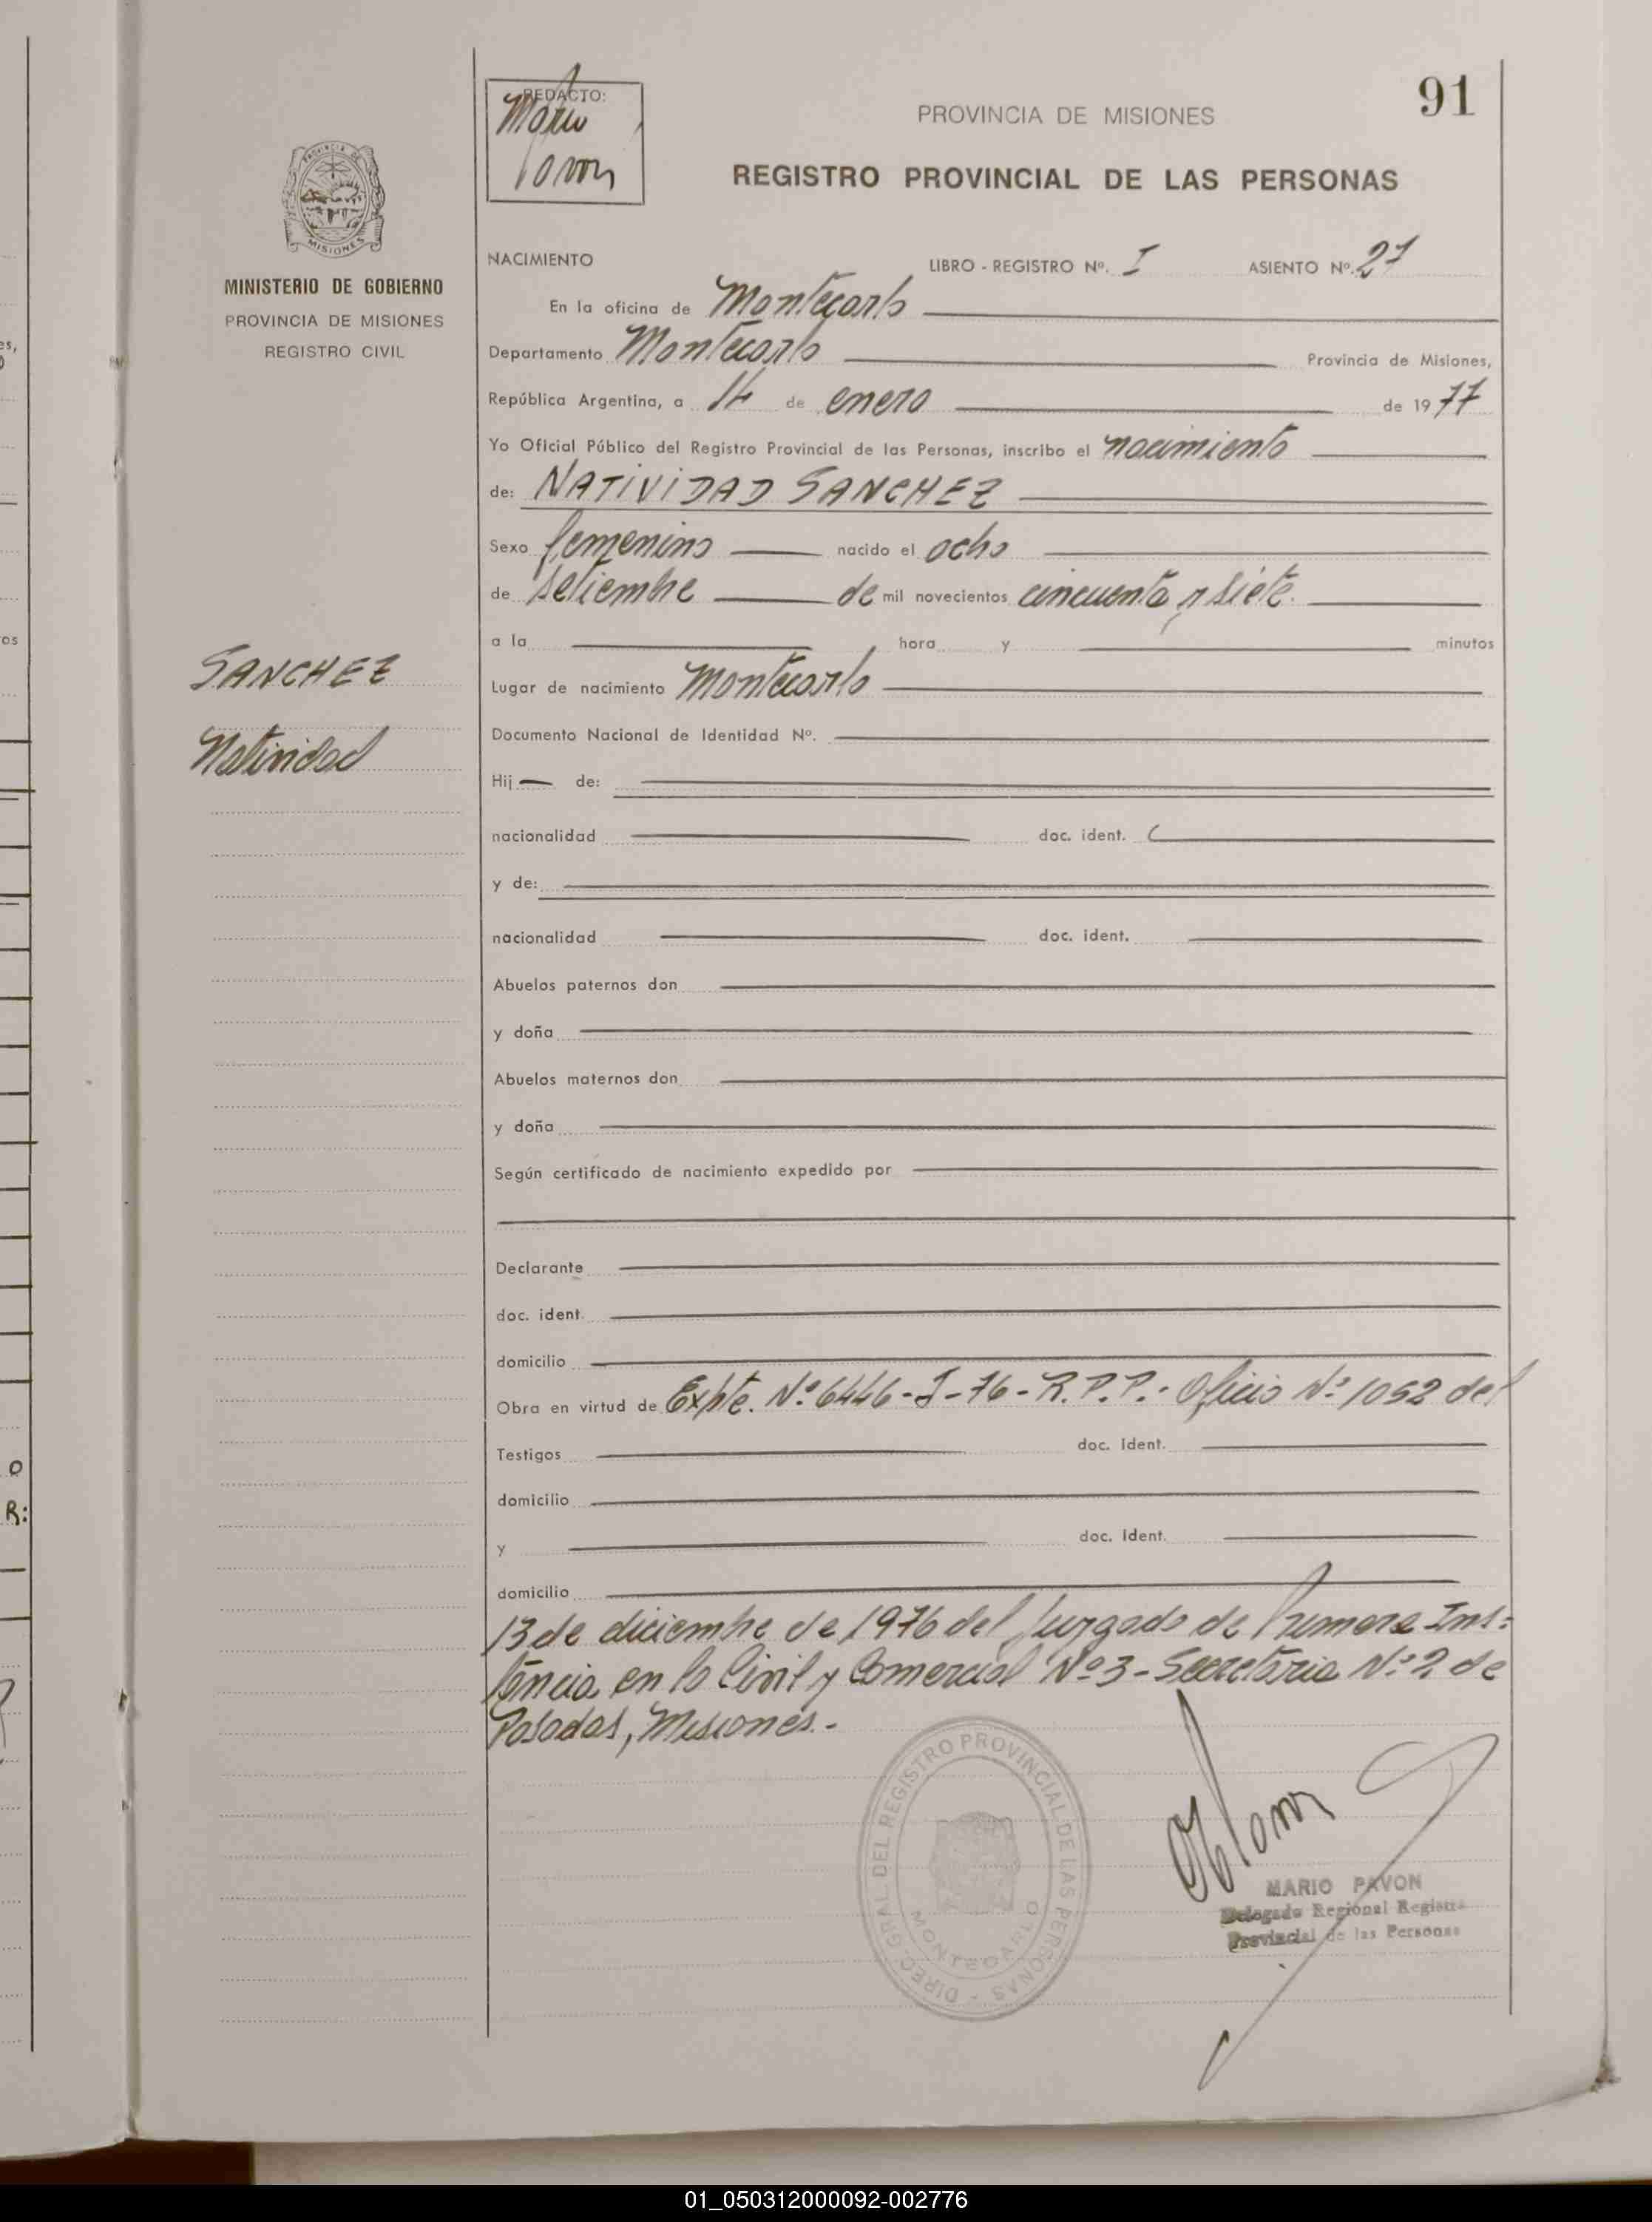 91
REDACTO:
Mario
Pavon
PROVINCIA DE MISIONES
REGISTRO PROVINCIAL DE LAS PERSONAS
PROVINCIA DE
MISIONES
MINISTERIO DE GOBIERNO
PROVINCIA DE MISIONES
REGISTRO CIVIL
SANCHEZ
Natividad
NACIMIENTO LIBRO - REGISTRO Nº. I ASIENTO Nº. 27
En la oficina de Montecarlo
Departamento Montecarlo Provincia de Misiones,
República Argentina, a 14 de enero de 1977
Yo Oficial Público del Registro Provincial de las Personas, inscribo el nacimiento
de: NATIVIDAD SANCHEZ
Sexo femenino nacido el ocho
de setiembre de mil novecientos cincuenta y siete.
a la hora y minutos
Lugar de nacimiento Montecarlo
Documento Nacional de Identidad Nº.
Hij de:
nacionalidad doc. ident.
y de:
nacionalidad doc. ident.
Abuelos paternos don
y doña
Abuelos maternos don
y doña
Según certificado de nacimiento expedido por
Declarante
doc. ident.
domicilio
Obra en virtud de Expte. Nº 6446-J-76-R.P.P.- Oficio Nº 1052 del
Testigos doc. Ident.
domicilio
y doc. Ident.
domicilio
13 de diciembre de 1976 del Juzgado de Primera Ins-
tancia en lo Civil y Comercial Nº 3 - Secretaria Nº 2 de
Posadas, Misiones.-
DIREC. GRAL. DEL REGISTRO PROVINCIAL DE LAS PERSONAS -
MONTECARLO
MPavon
MARIO PAVON
Delegado Regional Registro
Provincial de las Personas
es,
os
o
R:
01_050312000092-002776